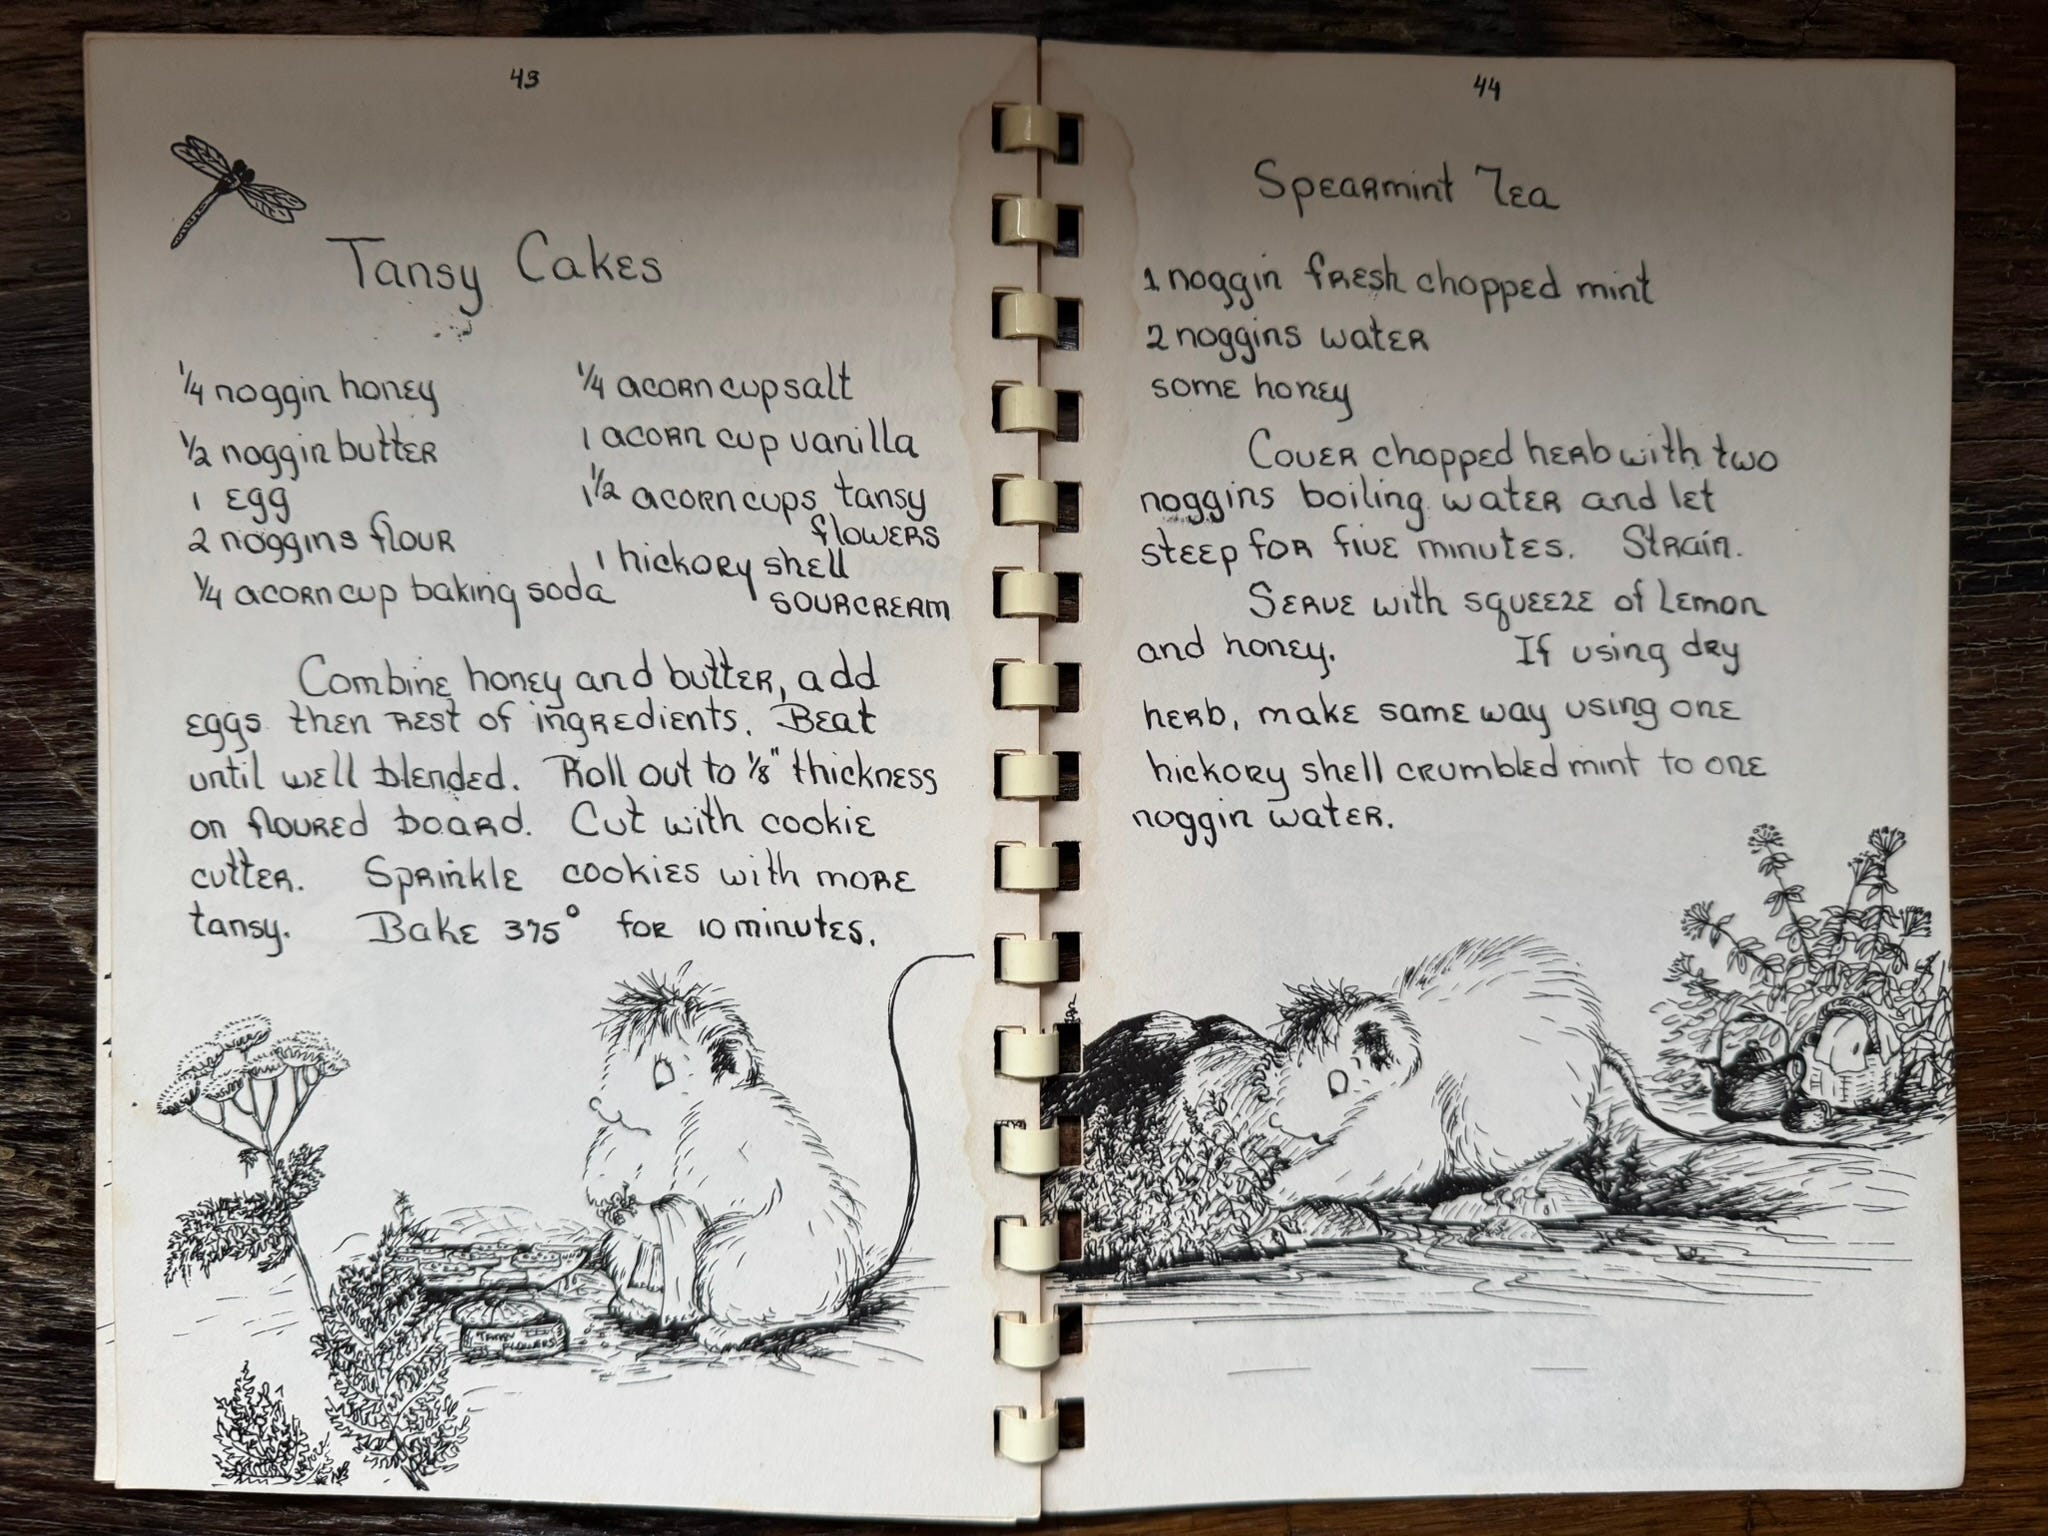 43
Tansy Cakes
1/4 noggin honey
1/2 noggin butter
1 egg
2 noggins flour
1/4 acorn cup baking soda
1/4 acorn cup salt
1 acorn cup vanilla
1 1/2 acorn cups tansy
flowers
1 hickory shell
sourcream
Combine honey and butter, add
eggs then rest of ingredients. Beat
until well blended. Roll out to 1/8" thickness
on floured board. Cut with cookie
cutter. Sprinkle cookies with more
tansy. Bake 375° for 10 minutes.
TANSY
FLOWERS
44
Spearmint Tea
1 noggin fresh chopped mint
2 noggins water
some honey
Cover chopped herb with two
noggins boiling water and let
steep for five minutes. Strain.
Serve with squeeze of lemon
and honey. If using dry
herb, make same way using one
hickory shell crumbled mint to one
noggin water.